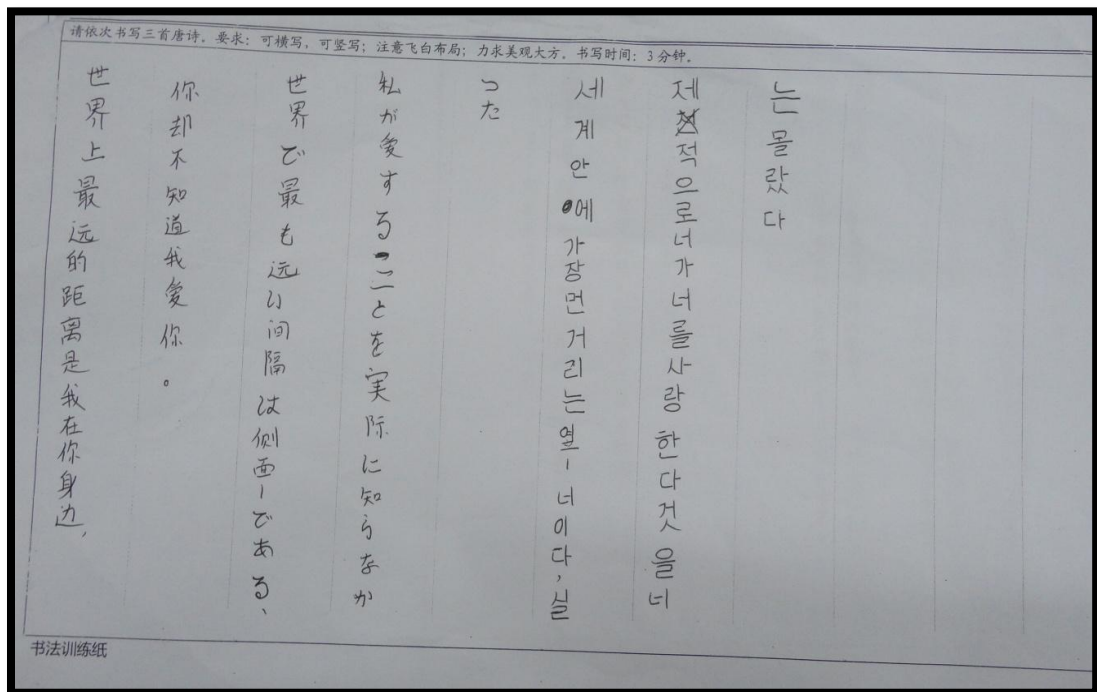 请依次书写三首唐诗。要求：可横写，可竖写；注意飞白布局；力求美观大方。书写时间：3分钟。
世界上最远的距离是我在你身边，
你却不知道我爱你。
世界で最も远い间隔は侧面ーである、
私が愛することを実际に知らなか
った
세계안에가장먼거리는옆ー너이다,실
제적으로너가너를사랑한다것을너
는몰랐다
书法训练纸